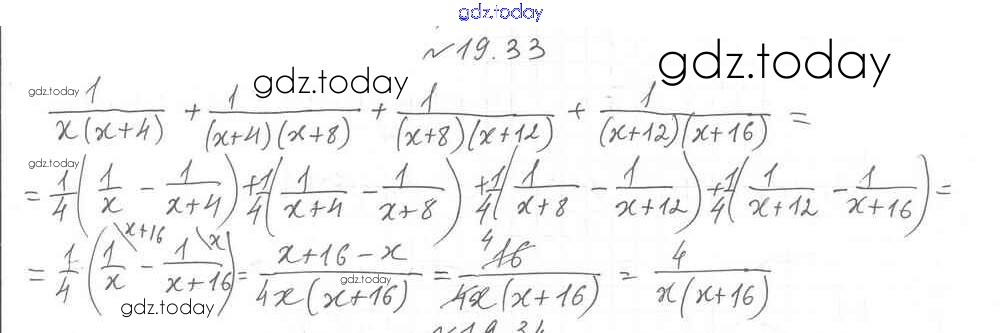 gdz.today
№19.33
gdz.today gdz.today gdz.today
1/(x(x+4)) + 1/((x+4)(x+8)) + 1/((x+8)(x+12)) + 1/((x+12)(x+16)) =
gdz.today
= 1/4 (1/x - 1/(x+4)) + 1/4 (1/(x+4) - 1/(x+8)) + 1/4 (1/(x+8) - 1/(x+12)) + 1/4 (1/(x+12) - 1/(x+16)) =
= 1/4 (1/x \x+16 - 1/(x+16) \x) = (x+16-x)/(4x(x+16)) = 4 16/(4x(x+16)) = 4/(x(x+16))
gdz.today gdz.today gdz.today
№19.34